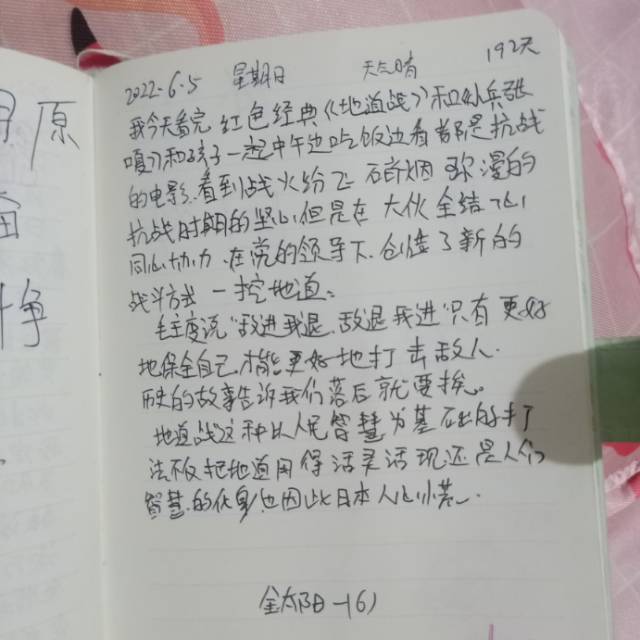 原
斗争
2022.6.5 星期日 天气晴 192天
我今天看完红色经典《地道战》和《小兵张
嘎》和孩子一起中午边吃饭边看 都是抗战
的电影.看到战火纷飞 硝烟弥漫的
抗战时期的坚心但是在大伙全结一心
同心协力.在党的领导下.创造了新的
战斗方式一挖地道。
毛主席说"敌进我退,敌退我进"只有更好
地保全自己才能更好地打击敌人.
历史的故事告诉我们落后就要挨。
地道战这种以人民智慧为基础的打
法不仅把地道用得活灵活现还是人们
智慧的化身也因此日本人心小慌.
金太阳-161